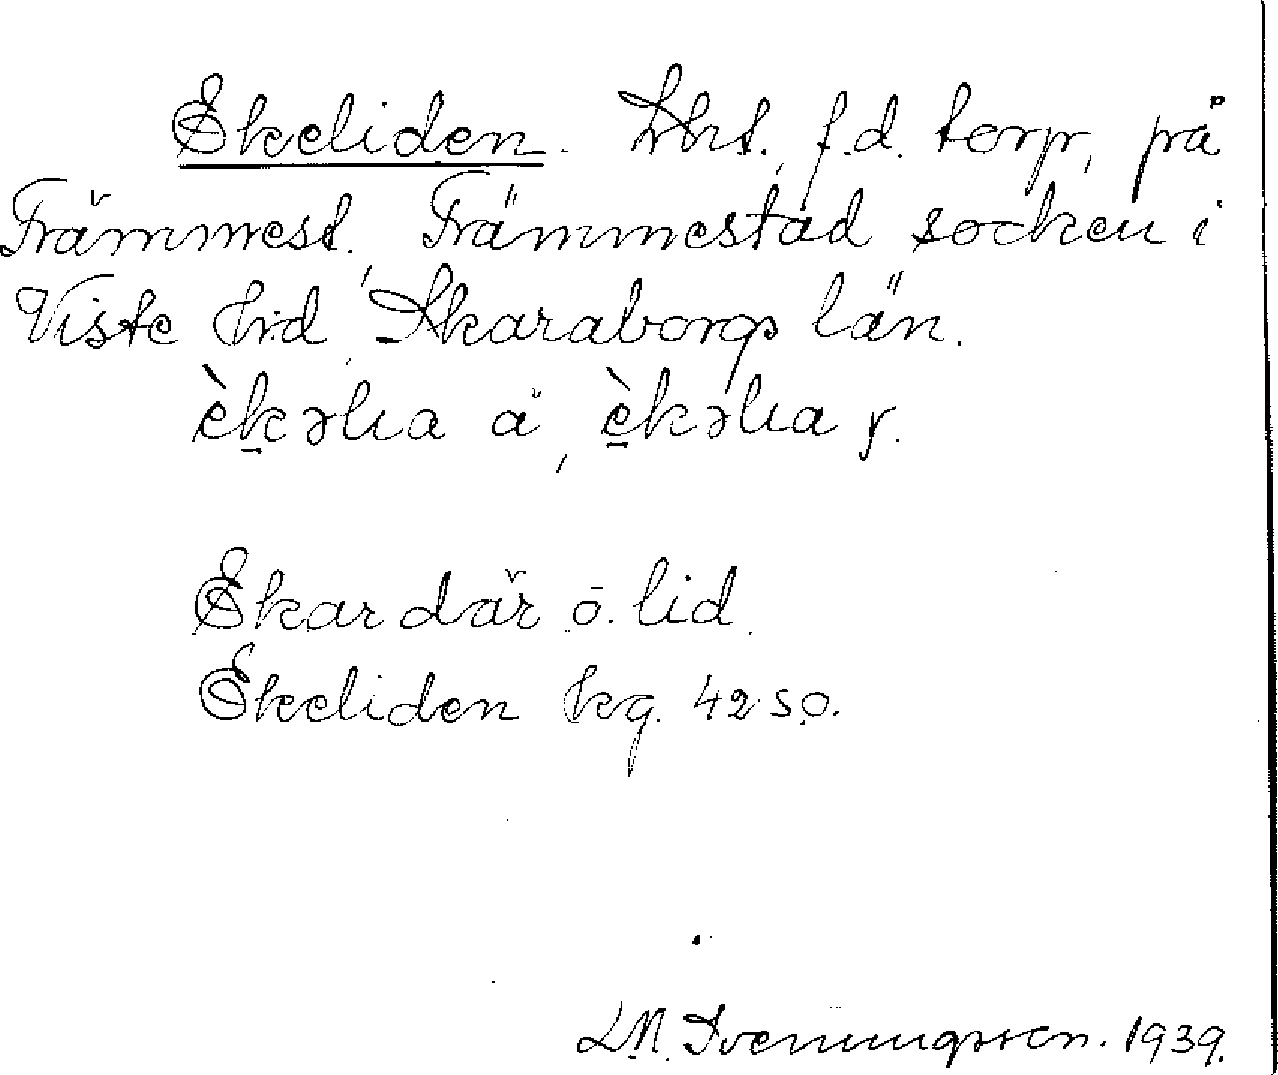 Ekeliden. Lht., f.d. torp, på
Främmest., Främmestad socken i
Viste hrd, Skaraborgs län.
èkəlia ä, èkəlia y.
Ekar där o. lid.
Ekeliden kg. 42 SO.
LM. Sveningsson. 1939.